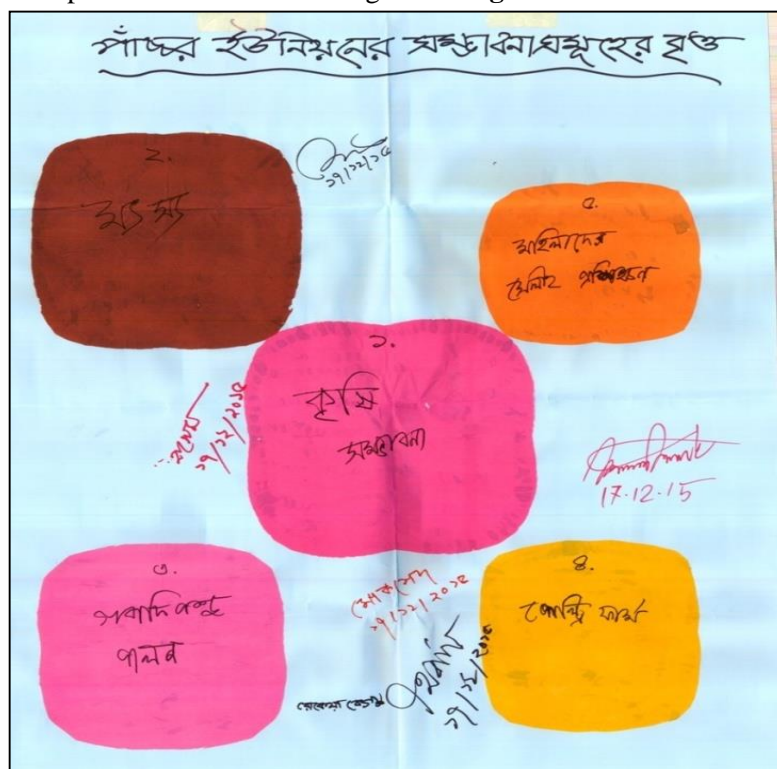 পাঁচ্চর ইউনিয়নের সম্ভাবনাসমূহের বৃত্ত
২.
মৎস্য
১৭/১২/১৫
৫.
মহিলাদের
সেলাই প্রশিক্ষন
১.
কৃষি
সম্ভাবনা
১৭/১২/২০১৫
17.12.15
৩.
গবাদিপশু
পালন
১৭/১২/২০১৫
৪.
পোল্ট্রি ফার্ম
১৭/১২/২০১৫